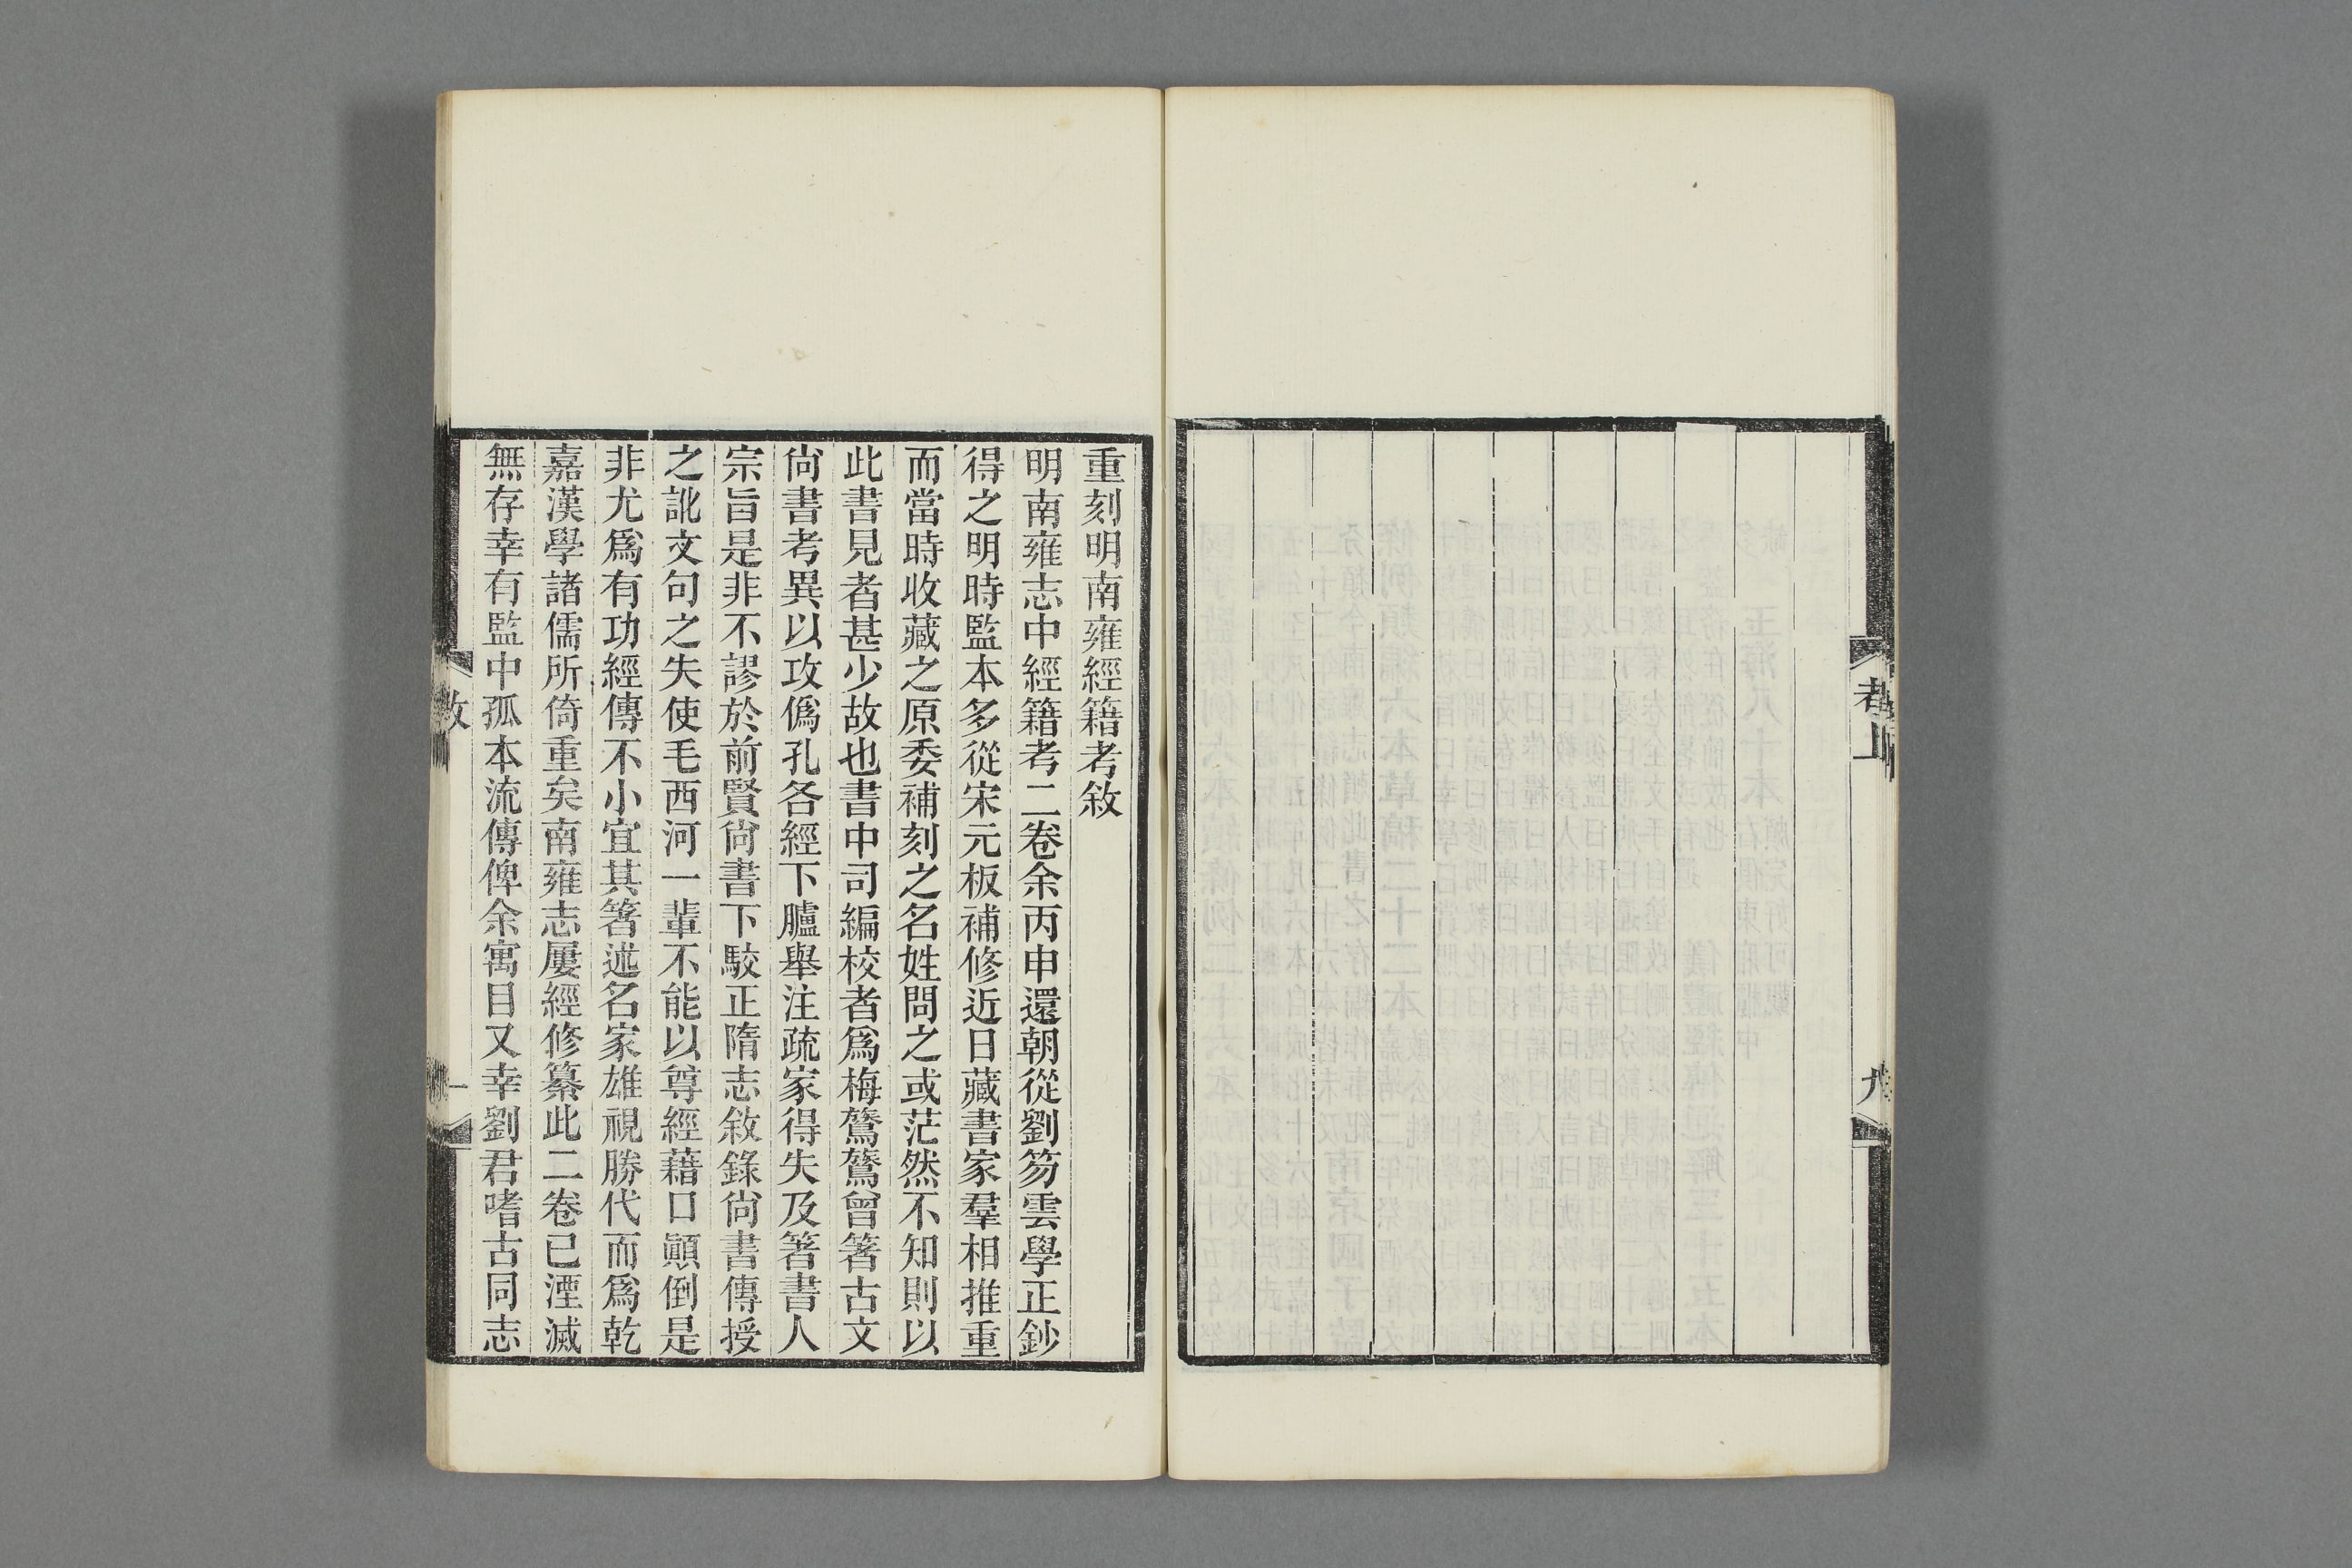 重刻明南雍經籍考敘
明南雍志中經籍考二卷余丙申還朝從劉笏雲學正鈔
得之明時監本多從宋元板補修近日藏書家羣相推重
而當時收藏之原委補刻之名姓問之或茫然不知則以
此書見者甚少故也書中司編校者爲梅鷟鷟曾箸古文
尙書考異以攻僞孔各經下臚舉注疏家得失及箸書人
宗旨是非不謬於前賢尙書下駮正隋志敘錄尙書傳授
之訛文句之失使毛西河一輩不能以尊經藉口顚倒是
非尤爲有功經傳不小宜其箸述名家雄視勝代而爲乾
嘉漢學諸儒所倚重矣南雍志屢經修纂此二卷已湮滅
無存幸有監中孤本流傳俾余寓目又幸劉君嗜古同志
敘
一